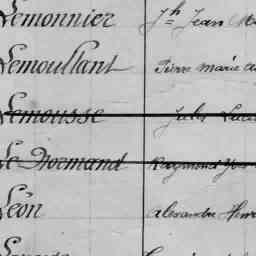 Lemonnier Jh Jean
Lemoullant Pierre Marie
Lemousse Jules
Le Normand Raymond
Léon Alexandre Henri